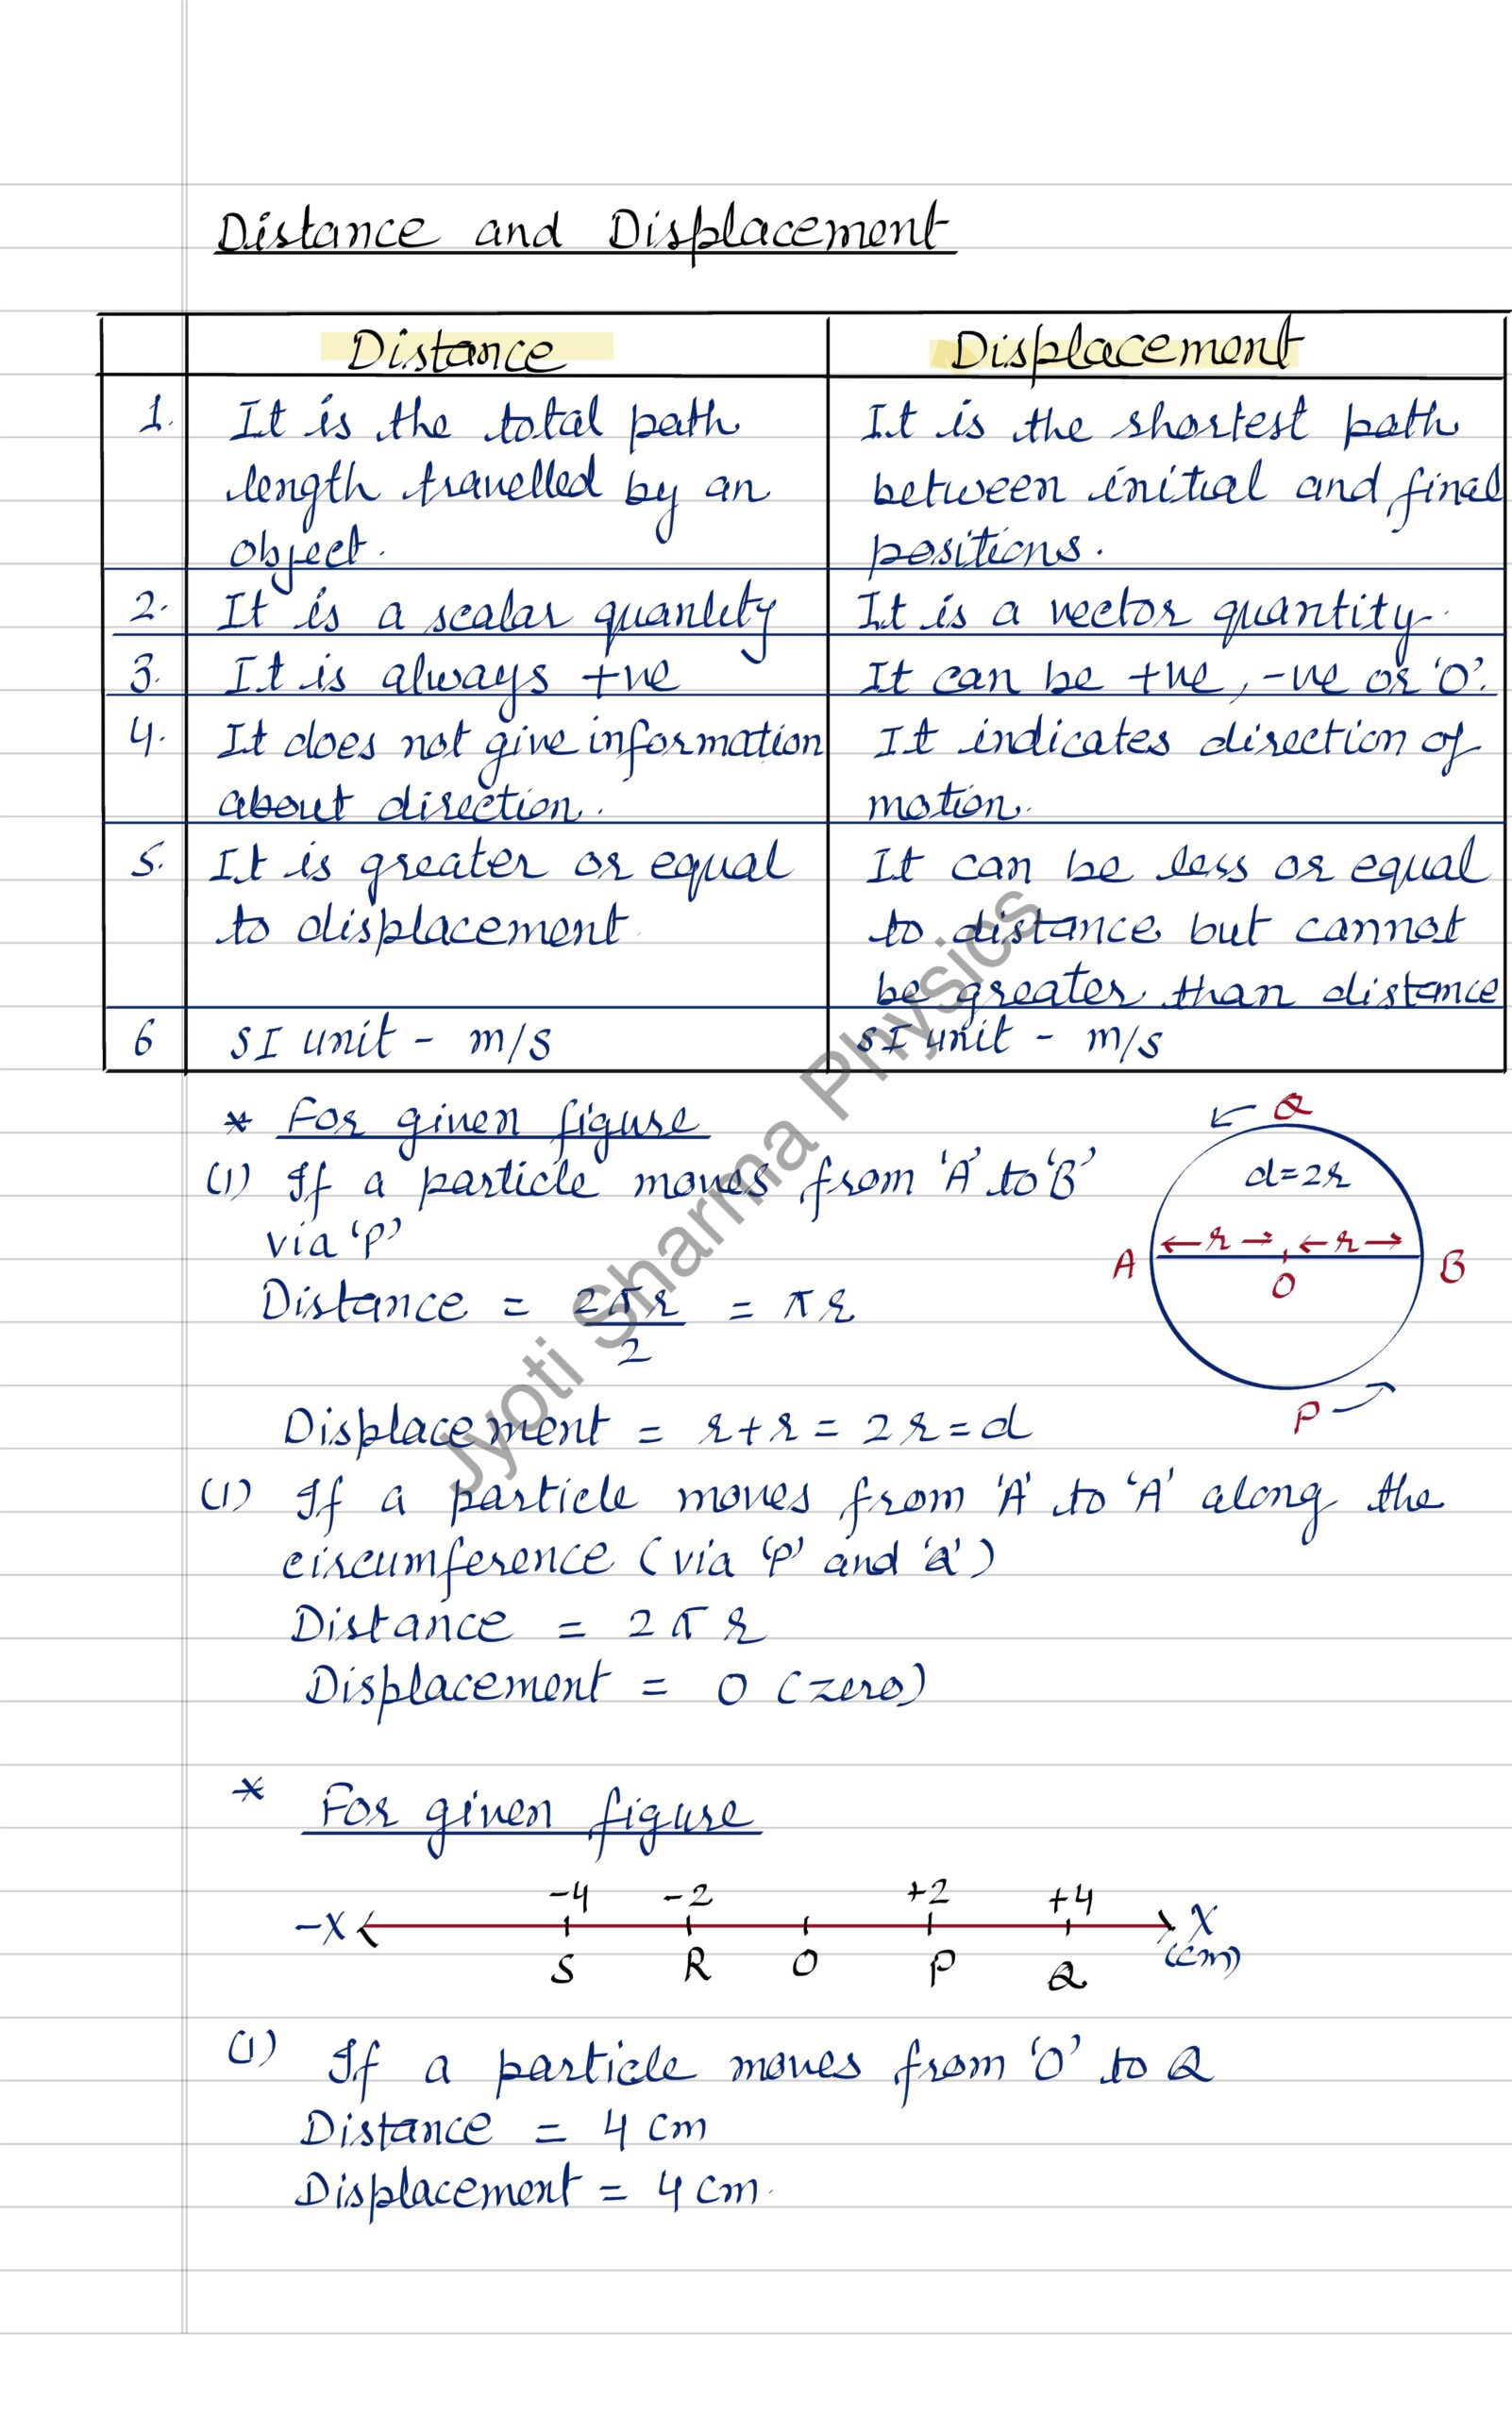 Distance and Displacement
Distance
Displacement
1.
It is the total path
length travelled by an
object.
It is the shortest path
between initial and final
positions.
2.
It is a scalar quantity
It is a vector quantity.
3.
It is always +ve
It can be +ve, -ve or '0'.
4.
It does not give information
about direction.
It indicates direction of
motion.
5.
It is greater or equal
to displacement
It can be less or equal
to distance but cannot
be greater than distance
6
SI unit - m/s
SI unit - m/s
* For given figure
(1) If a particle moves from 'A' to 'B'
via 'P'
Distance = 2πr/2 = πr
Displacement = r+r = 2r = d
Q
d=2r
A ←r→ ←r→ B
O
P
(1) If a particle moves from 'A' to 'A' along the
circumference (via 'P' and 'Q')
Distance = 2πr
Displacement = 0 (zero)
* For given figure
-4 -2 +2 +4
-X X
S R O P Q (cm)
(1) If a particle moves from 'O' to Q
Distance = 4 cm
Displacement = 4 cm.
Jyoti Sharma Physics